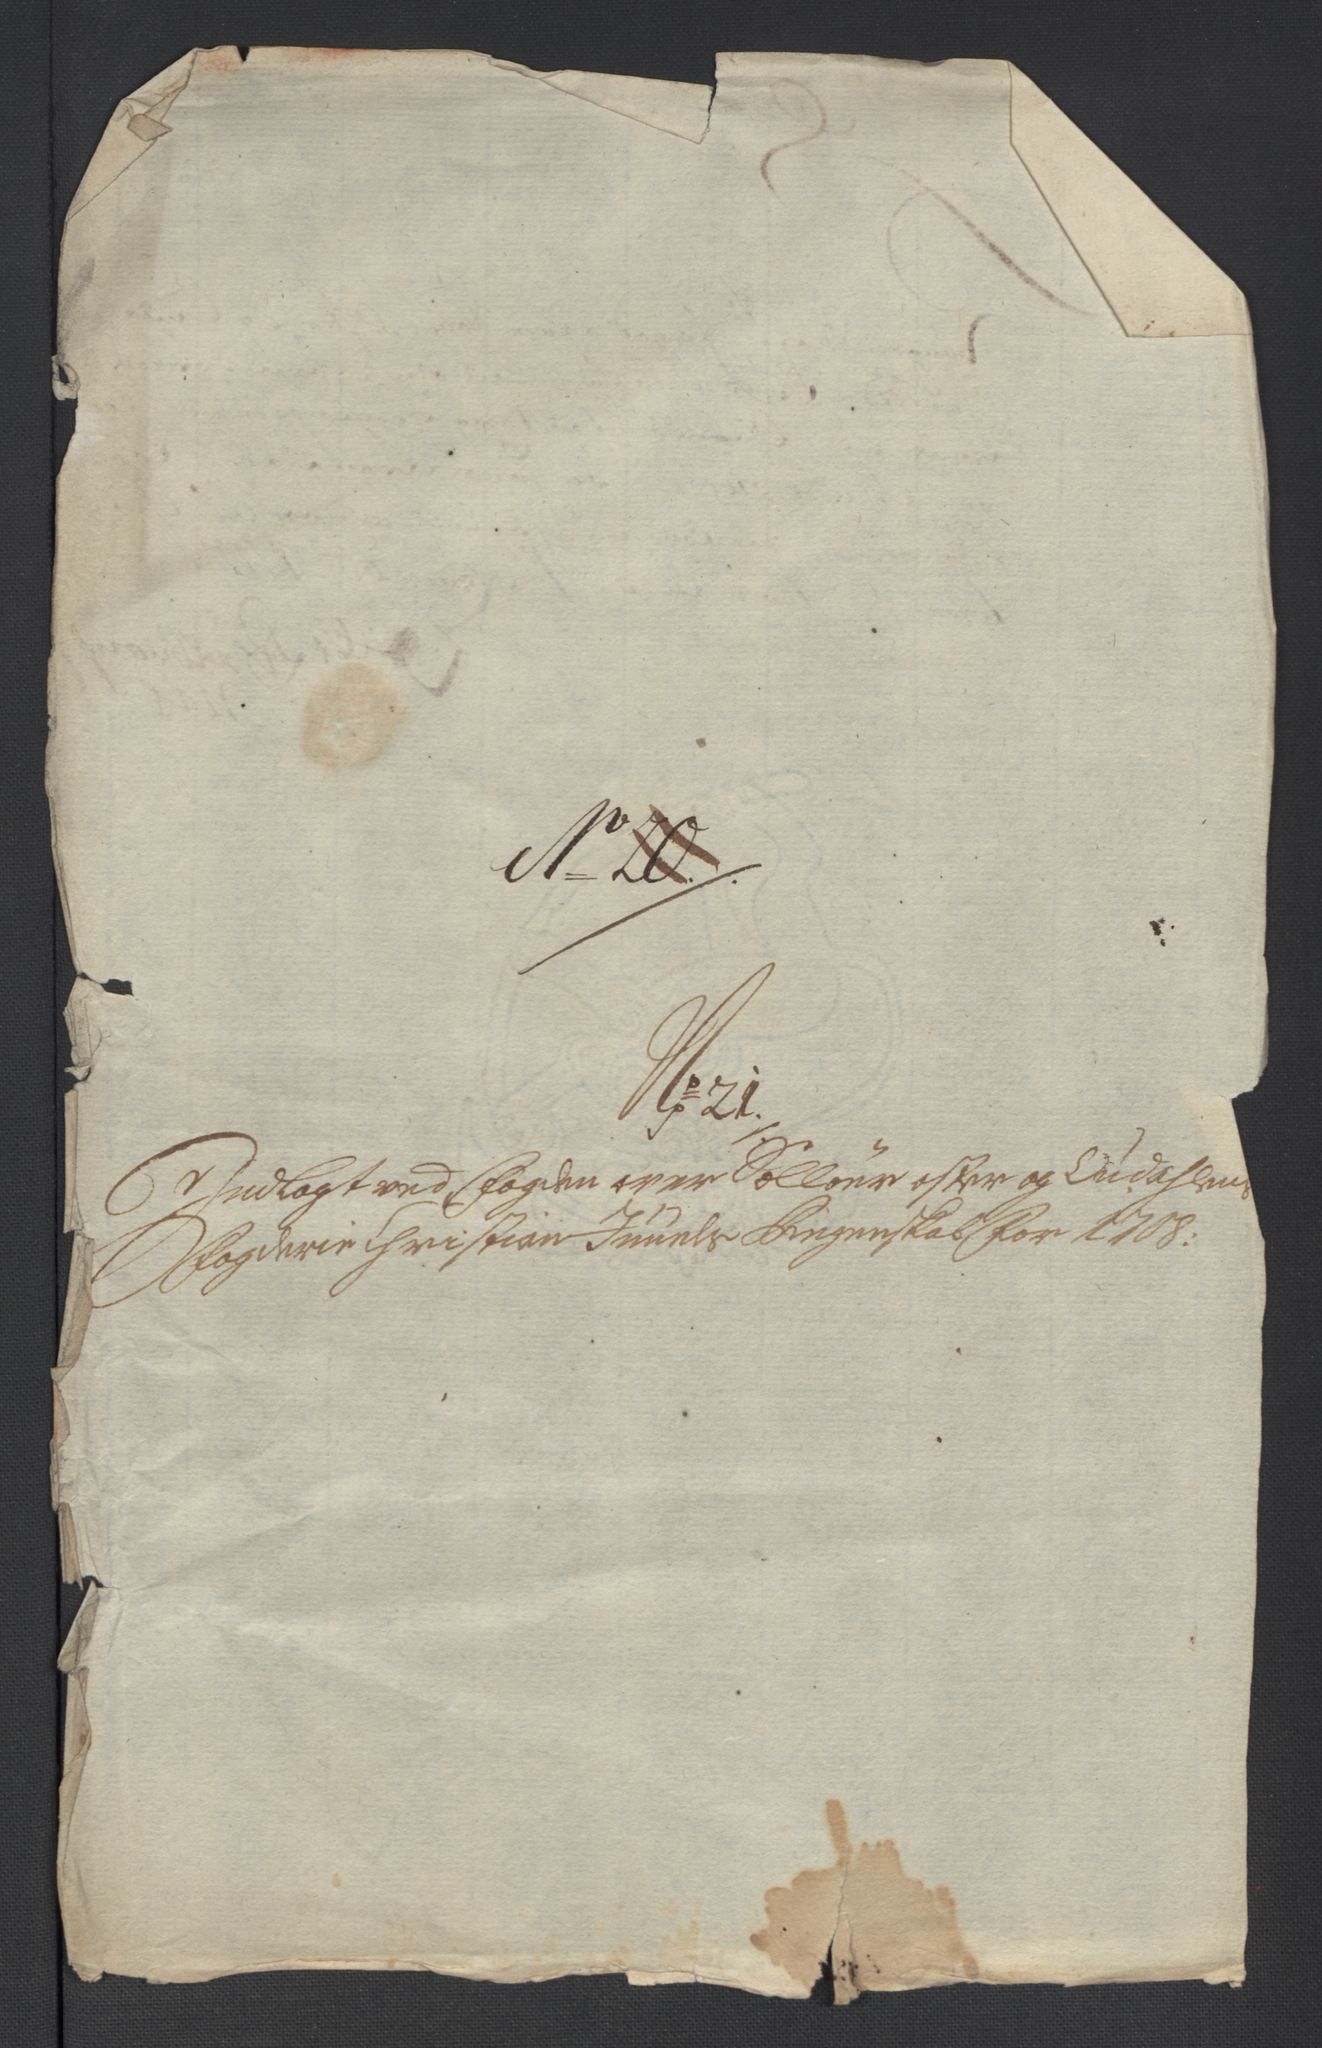 No 20.
No 21.
Indlagt ved fogden over Solløer øster og Oudahlens
fogderie Christian Juuels Regenskab for 1708: